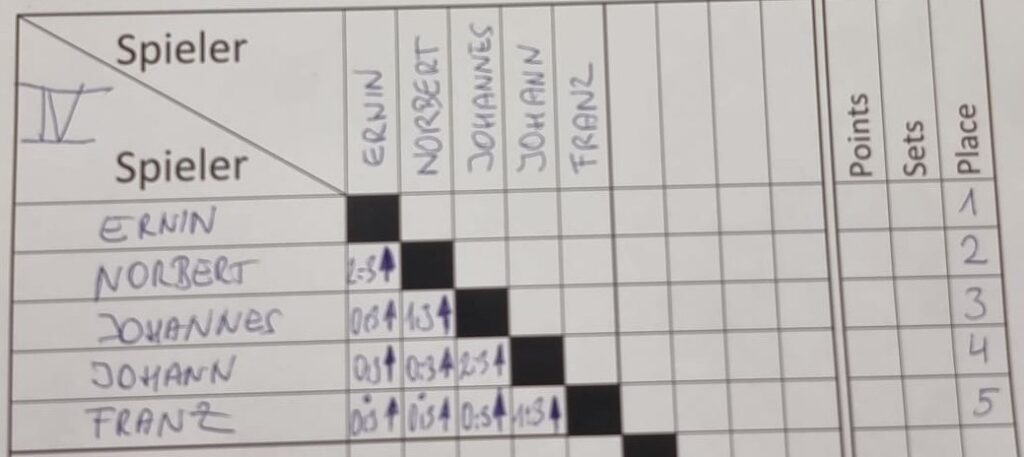 Spieler
IV
Spieler
ERNIN NORBERT JOHANNES JOHANN FRANZ Points Sets Place
ERNIN 1
NORBERT 2:3↑ 2
JOHANNES 0:3↑ 1:3↑ 3
JOHANN 0:3↑ 0:3↑ 2:3↑ 4
FRANZ 0:3↑ 0:3↑ 0:3↑ 1:3↑ 5